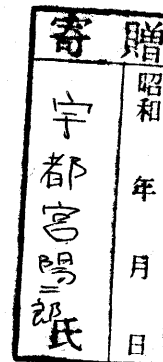 寄贈
昭和　年　月　日
宇都宮陽二郎氏